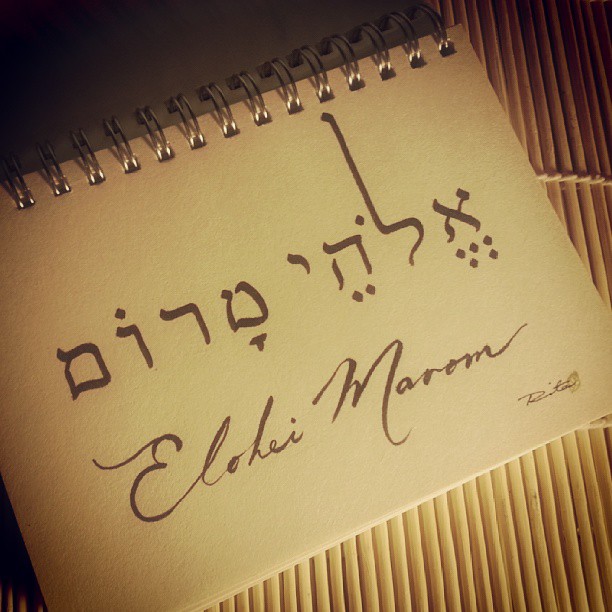 אֱלֹהֵי מָרוֹם
Elohei Marom
Rita